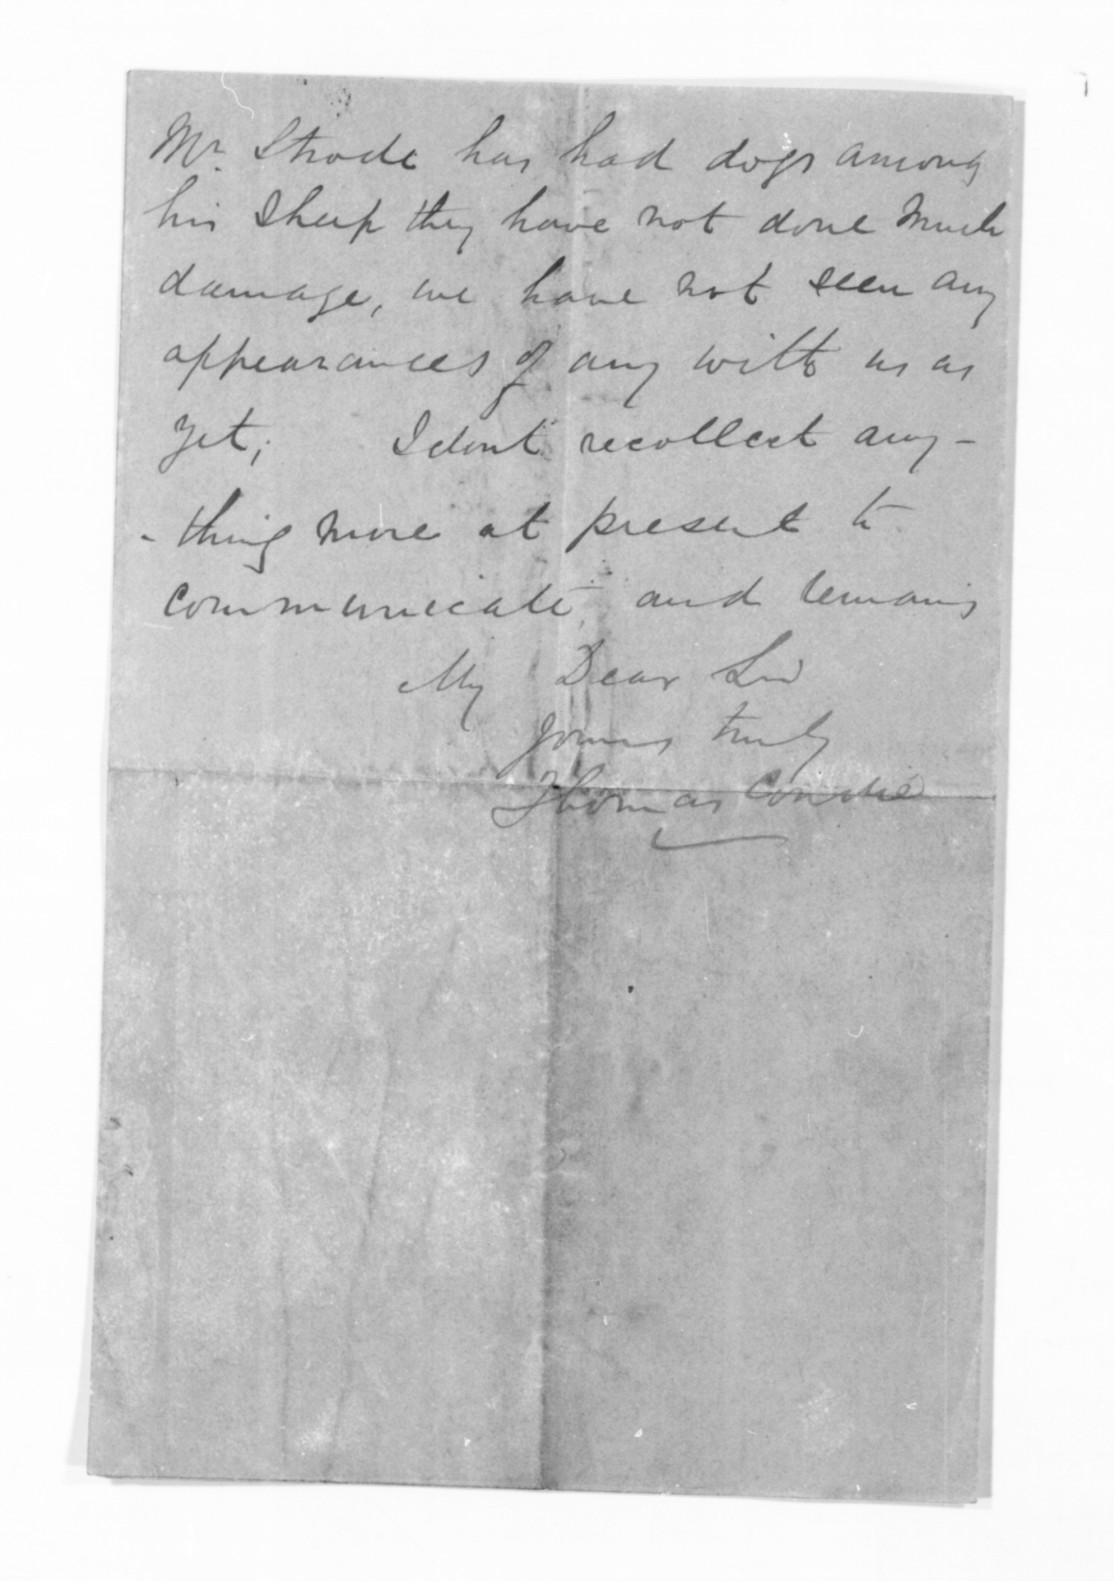 Mr. Strode has had dogs among
his Sheep they have not done Much
damage, we have not seen any
appearances of any with us as
yet; I dont recollect any-
-thing more at present to
communicate, and remains
My Dear Sir
yours truly
Thomas